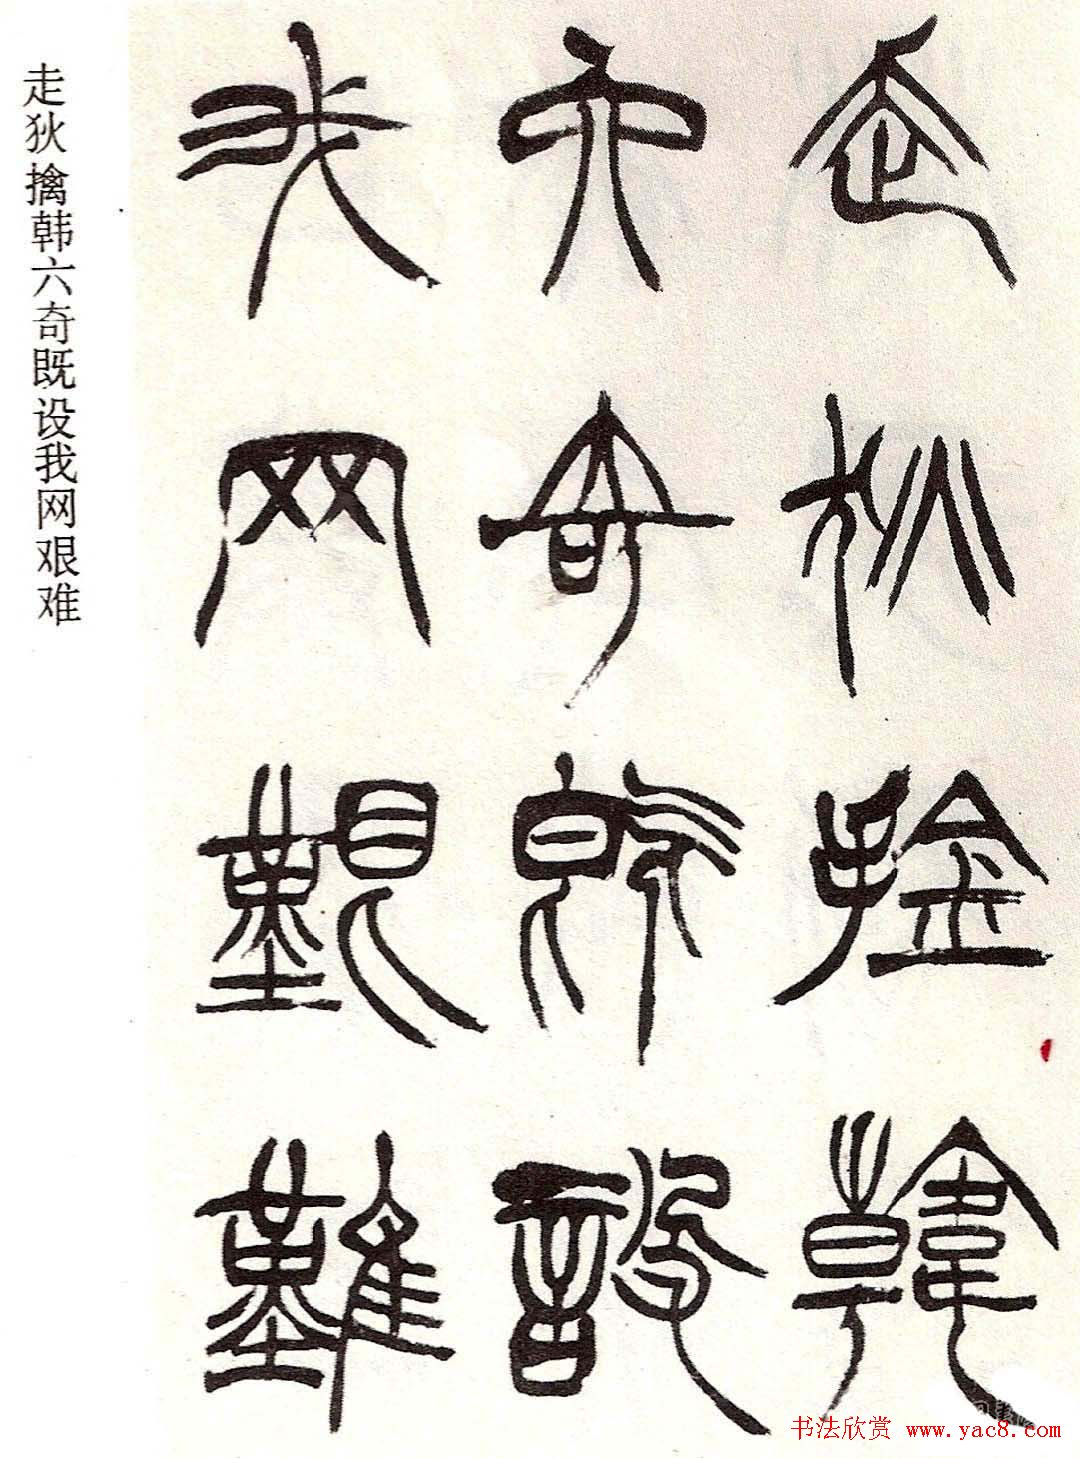 走狄擒韩
六奇既设
我网艰难
走狄擒韩六奇既设我网艰难
书法欣赏 www.yac8.com